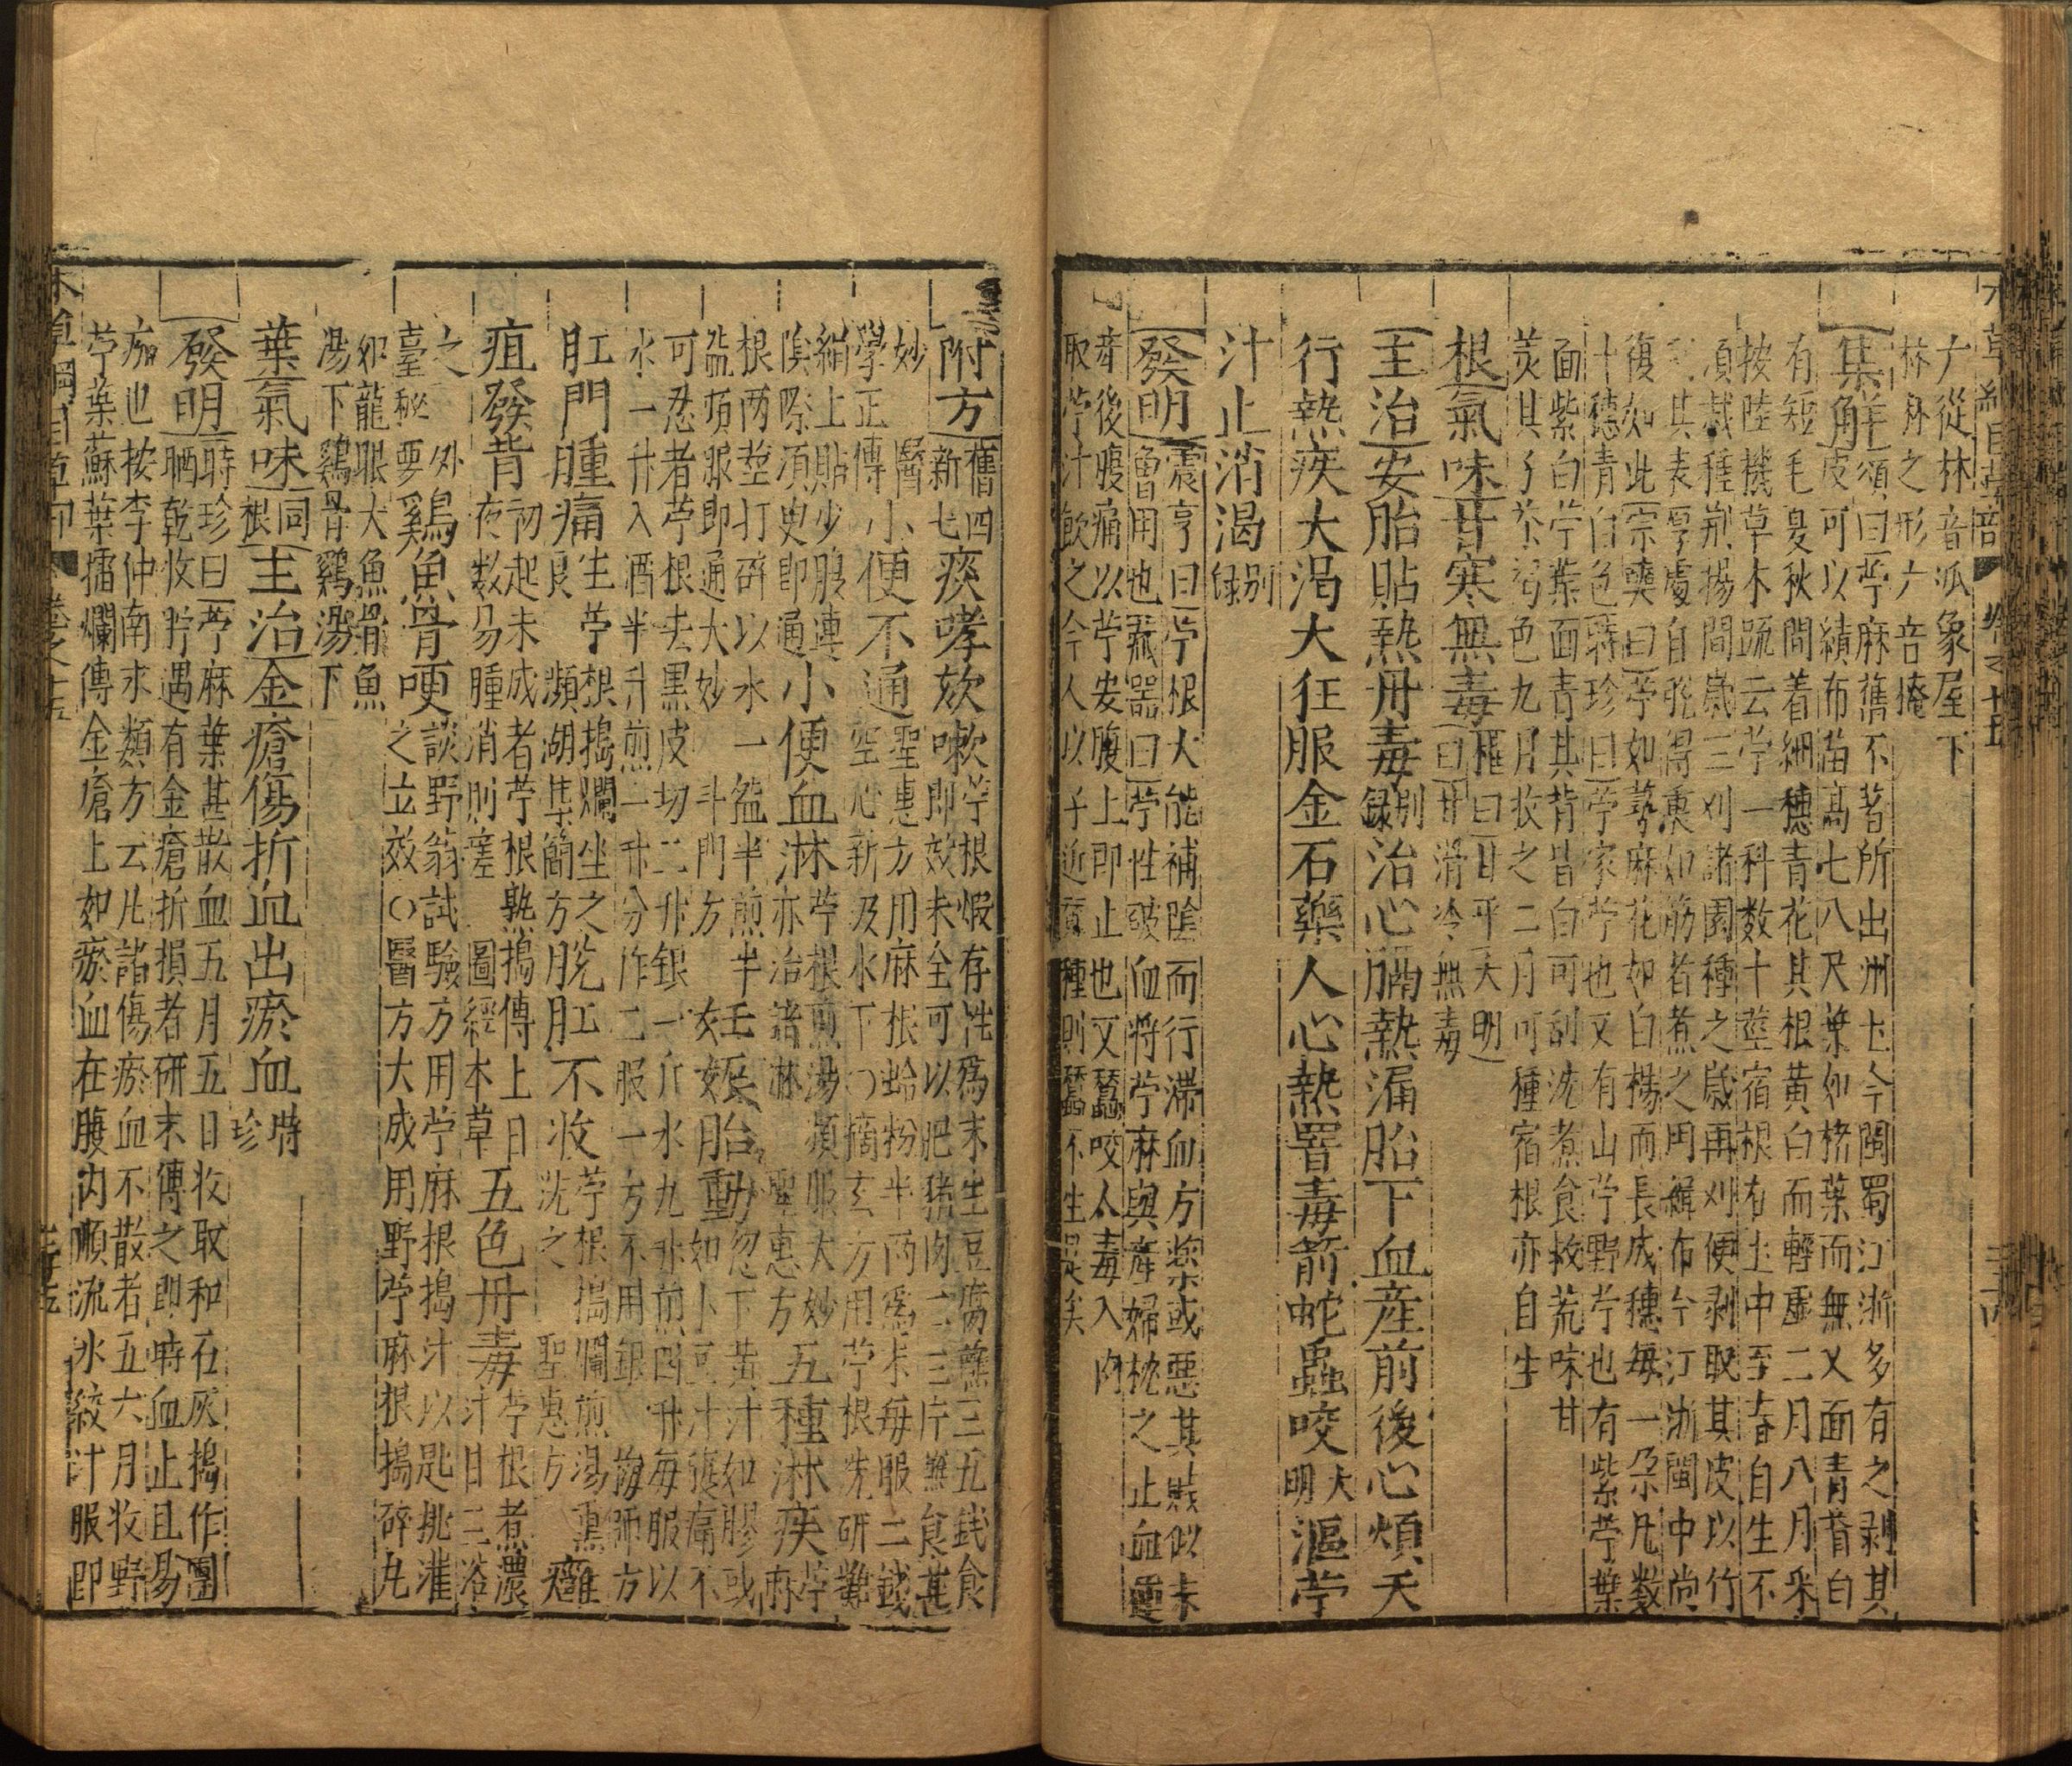 本草綱目草部 卷之十五 三十四
广從林音派象屋下
林麻之形广音掩
集解頌曰苧麻舊不著所出州土今閩蜀江浙多有之剥其
皮可以績布苗高七八尺葉如楮葉而無叉面青背白
有短毛夏秋間着細穗青花其根黄白而輕虛二月八月采
按陸機草木疏云苧一科數十莖宿根在土中至春自生不
須栽種荆揚間歲三刈諸園種之歲再刈便剥取其皮以竹
其表厚處自脫得裏如筋者煮之用緝布今江浙閩中尚
復如此宗奭曰苧如蕁麻花如白楊而長成穗每一朶凡數
十穗青白色時珍曰苧家苧也又有山苧野苧也有紫苧葉
面紫白苧葉面青其背皆白可刮洗煮食救荒味甘
美其子茶褐色九月收之二月可種宿根亦自生
根氣味甘寒無毒權曰甘平大明
曰甘滑冷無毒
主治安胎貼熱丹毒别
録治心膈熱漏胎下血産前後心煩天
行熱疾大渴大狂服金石藥人心熱署毒箭蛇蟲咬大
明漚苧
汁止消渴别
録
發明震亨曰苧根大能補陰而行滯血方藥或惡其賤似未
曾用也藏器曰苧性破血將苧麻與産婦枕之止血運
産後腹痛以苧安腹上即止也又蠶咬人毒入肉
取苧汁飲之今人以苧近蠶種則蠶不生是矣
附方舊四
新七痰哮欬嗽苧根煅存性爲末生豆腐蘸三五錢食
即效未全可以肥豬肉二三片蘸食甚
妙 醫
學正傳小便不通聖惠方用麻根蛤粉半兩爲末每服二錢
空心新汲水下○摘玄方用苧根洗研攤
絹上貼少腹連
陰際須臾即通小便血淋苧根煎湯頻服大妙
亦治諸淋 聖惠方五種淋疾苧麻
根兩莖打碎以水一盌半煎半
盌頓服即通大妙 斗門方妊娠胎動忽下黄汁如膠或
如小豆汁腹痛不
可忍者苧根去黑皮切二升銀一斤水九升煎四升每服以
水一升入酒半升煎一升分作二服一方不用銀 梅師方
肛門腫痛生苧根搗爛坐之
良 瀕湖集簡方脫肛不收苧根搗爛煎湯熏
洗之 聖惠方癰
疽發背初起未成者苧根熟搗傅上日
夜數易腫消則瘥 圖經本草五色丹毒苧根煮濃
汁日三浴
之 外
臺秘要鷄魚骨哽談野翁試驗方用苧麻根搗汁以匙挑灌
之立效○醫方大成用野苧麻根搗碎丸
如龍眼大魚骨魚
湯下鷄骨鷄湯下
葉氣味同
根主治金瘡傷折血出瘀血時
珍
發明時珍曰苧麻葉甚散血五月五日收取和石灰搗作團
晒乾收貯遇有金瘡折損者研末傅之即時血止且易
痂也按李仲南永類方云凡諸傷瘀血不散者五六月收野
苧葉蘇葉擂爛傅金瘡上如瘀血在腹内順流水絞汁服即
本草綱目草部 卷之十五 三十五